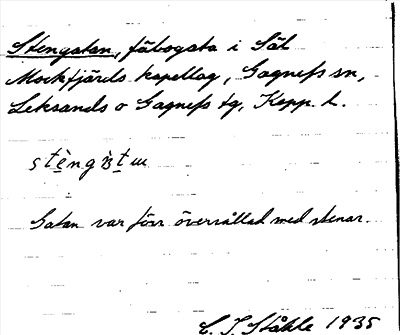 Stengatan, fäbogata i Säl
Mockfjärds kapellag, Gagnefs sn,
Leksands o Gagnefs tg, Kopp. l.
Gatan var förr överrållad med stenar.
C. I. Ståhle 1935